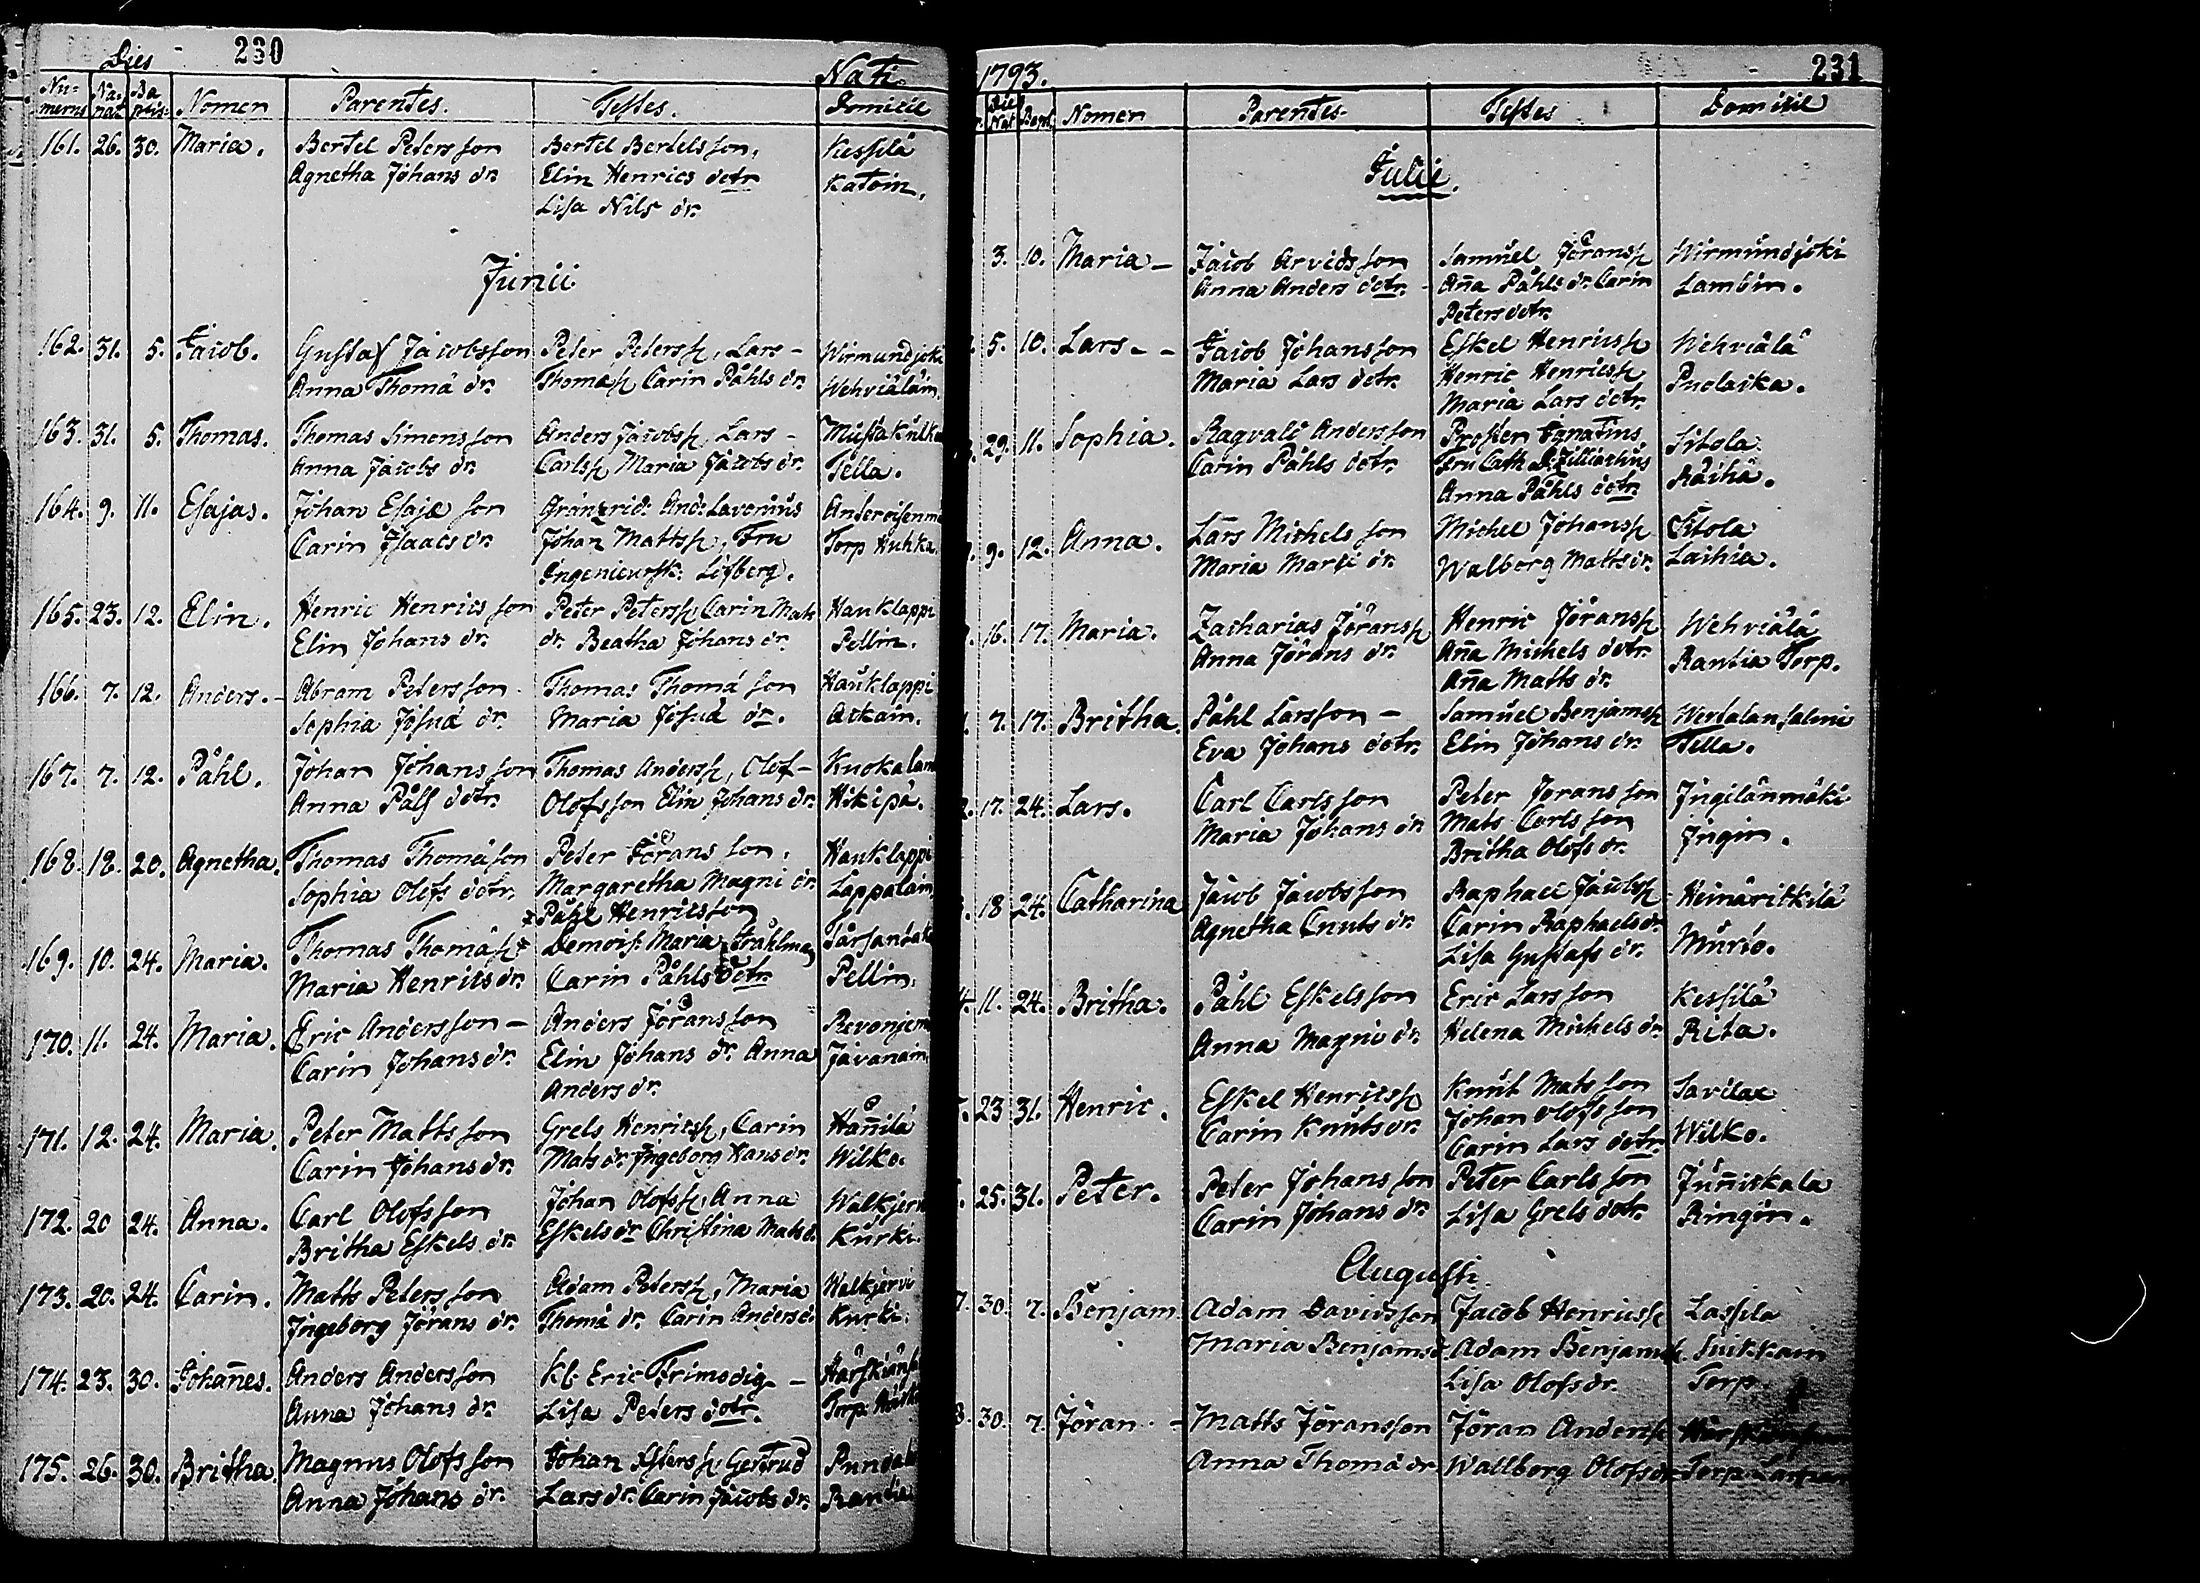 230
Dies
Nati
Numerus Na. nat. Ba ptis. Nomen Parentes. Testes. Domicil
161. 26. 30. Maria. Bertel Petersson Bertel Bertelsson, Kessilä
Agnetha Johans dr. Elin Henrics dotr. Katoin.
Lisa Nils dr.
Junii
162. 31. 5. Jacob. Gustaf Jacobsson Peter Peterss, Lars - Wirmundjoki
Anna Thomä dr. Thomæss Carin Påhls dr. Wehviäläin.
163. 31. 5. Thomas. Thomas Simonsson Anders Jacobss, Lars -
Anna Jacobs dr. Carlss Maria Jacobs dr. Tella.
164. 9. 11. Esajas. Johan Esajæ son And: Lavonius
Carin Isaacs dr. Johan Mattss, Fru Torp Huhka.
165. 23. 12. Elin. Henric Henricsson Peter Peterss Carin Mats Hauklappi
Elin Johans dr. dr. Beatha Johans dr. Pellin.
166. 7. 12. Anders. - Abram Petersson Thomas Thomä son Hauklappi
Sophia Josuä dr. Maria Josuä dr. Askain.
167. 7. 12. Påhl. Johan Johansson Thomas Anderss, Olof -
Anna Påls dotr. Olofsson Elin Johans dr. Hikipä.
168. 18. 20. Agnetha. Thomas Thomäson Peter Jörans son. Hauklappi
Sophia Olofs dotr. Margaretha Magni dr. Lappalain
Påhl Henricsson
169. 10. 24. Maria. Thomas Thomäss Demois. Maria Stråhlman
Maria Henrics dr. Carin Påhls dotr. Pellin.
170. 11. 24. Maria. Eric Andersson - Anders Jöransson
Carin Johans dr. Elin Johans dr. Anna Javanain
Anders dr.
171. 12. 24. Maria. Peter Mattsson Grels Henricss, Carin Hannilä
Carin Johans dr. Mats dr. Ingeborg Hans dr. Wilko.
172. 20 24. Anna. Carl Olofsson Johan Olofss, Anna Walkjervi
Britha Eskels dr. Eskels dr Christina Mats d. Kurki.
173. 20. 24. Carin. Matts Petersson Adam Peterss, Maria Walkjervi
Ingeborg Jörans dr. Thomä dr. Carin Anders d. Kurki.
174. 23. 30. Johannes. Anders Andersson Kl. Eric Frimodig -
Anna Johans dr. Lisa Peters dotr. Torp
175. 26. 30. Britha. Magnus Olofsson Johan Gertrud
Anna Johans dr. Lars dr. Carin Jacobs dr. Rantia
1793.
231
Die Nat Bapt. Nomen Parentes Testes Domicil
Julii.
3. 10. Maria - Jacob Arvidsson Samuel Jöranss Wirmundjoki
Anna Anders dotr. - Anna Påhls dr. Carin Lambin.
Peters dotr.
5. 10. Lars - - Jacob Johansson Eskel Henricss Wehviälä
Maria Lars dotr. Henric Henricss Puolaika.
Maria Lars dotr.
29. 11. Sophia. Ragvald Andersson Ignatius, Sitola
Carin Påhls dotr. Fru Cath.
Anna Påhls dotr. Räihä.
9. 12. Anna. Lars Michelsson Michel Johanss Sitola
Maria Marci dr. Walborg Matts dr. Laihia.
16. 17. Maria. Zacharias Jöranss Henric Jöranss Wehviälä
Anna Jörans dr. Anna Michels dotr. Rantia Torp.
Anna Matts dr.
7. 17. Britha. Påhl Larsson - Samuel Benjamss
Eva Johans dotr. Elin Johans dr. Tella.
17. 24. Lars. Carl Carlsson Peter Joransson Ingilänmäki
Maria Johans dr. Mats Carlsson Ingin.
Britha Olofs dr.
18 24. Catharina Jacob Jacobsson Raphael Jacobss
Agnetha Cnuts dr. Carin Raphaels dr. Murto.
Lisa Gustafs dr.
11. 24. Britha. Påhl Eskelsson Eric Larsson Kessilä
Anna Magni dr. Helena Michels dr. Rita.
23 31. Henric. Eskel Henricss Knut Matsson
Carin Knuts dr. Johan Olofsson Wilko.
Carin Lars dotr.
25. 31. Peter. Peter Johansson Peter Carlsson Junnikala
Carin Johans dr. Lisa Grels dotr. Ringin.
Augusti
30. 7. Benjam. Adam Davidsson Jacob Henricss Lassila
Maria Benjams d. Adam Benjamss Suikkain
Lisa Olofs dr. Torp.
30. 7. Jöran. - Matts Jöransson Jöran Anderss
Anna Thomä dr. Wallborg Olofs dr. Torp